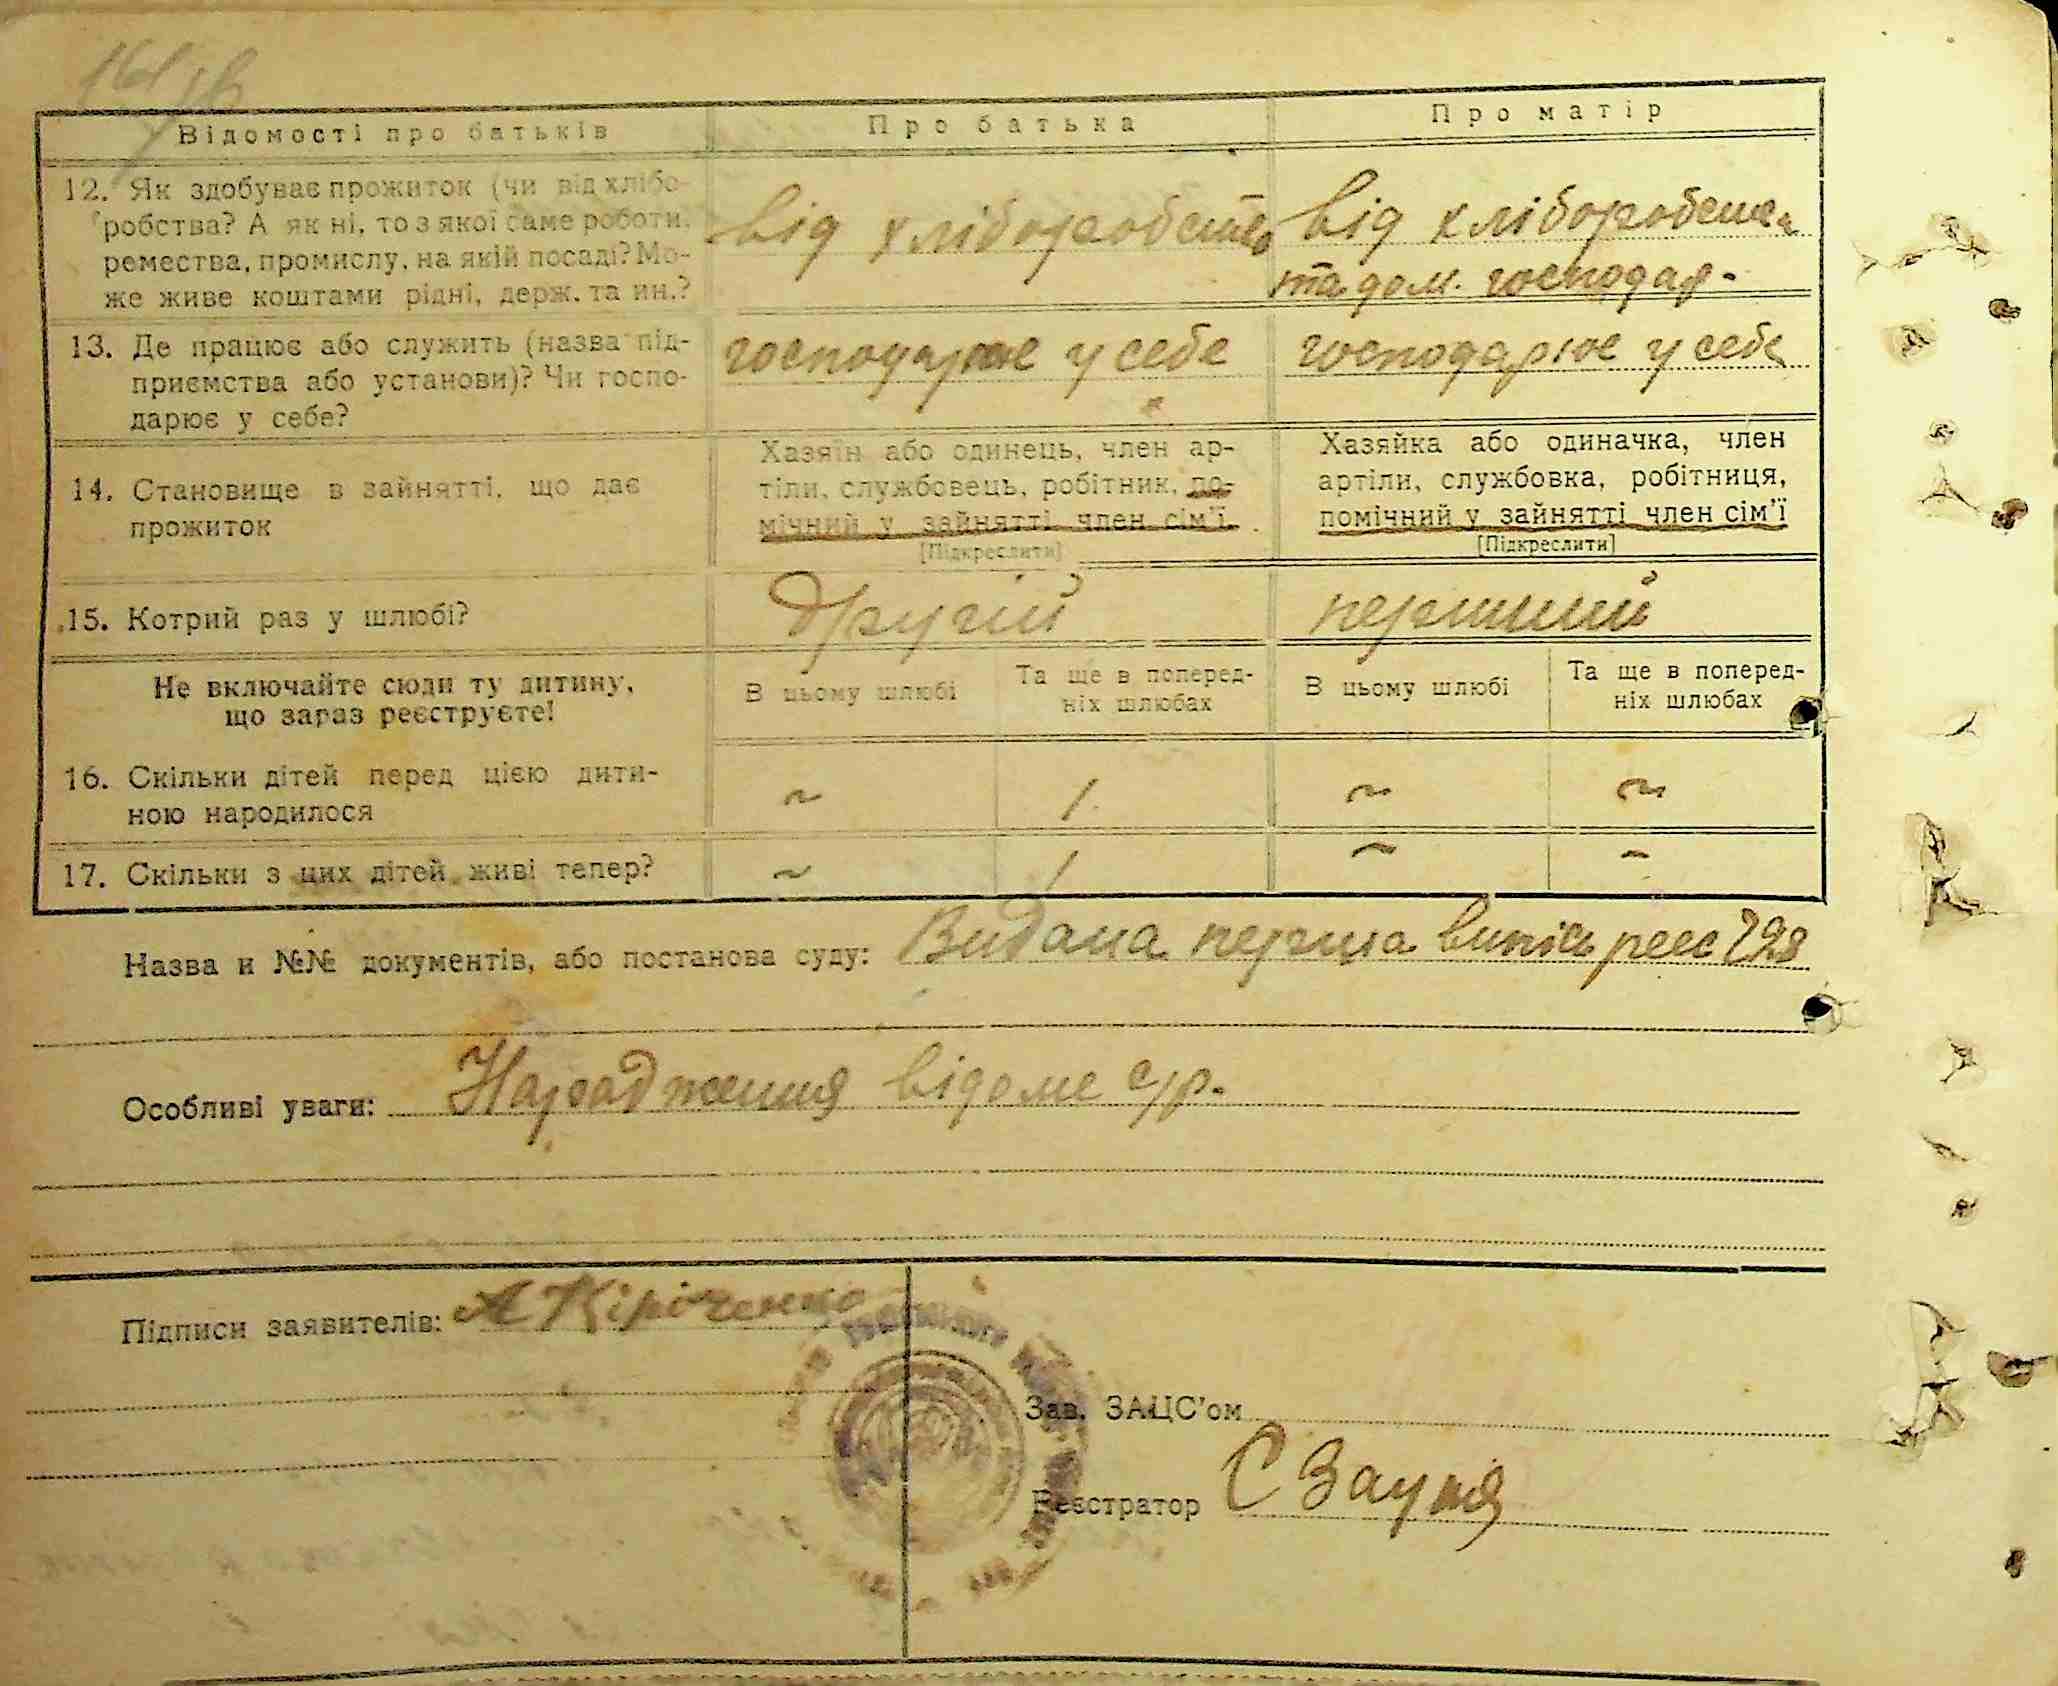 Відомості про батьків Про батька Про матір
12. Як здобуває прожиток (чи від хлібо-
робства? А як ні, то з якої саме роботи,
ремества, промислу, на якій посаді? Мо-
же живе коштами рідні, держ. та ин.?
від хліборобства
від хліборобства
та дом. господар-
13. Де працює або служить (назва під-
приємства або установи)? Чи госпо-
дарює у себе?
господарює у себе
господарює у себе
14. Становище в зайнятті, що дає
прожиток
Хазяїн або одинець, член ар-
тіли, службовець, робітник, по-
мічний у зайнятті член сім'ї.
[Підкреслити]
Хазяйка або одиначка, член
артіли, службовка, робітниця,
помічний у зайнятті член сім'ї
[Підкреслити]
15. Котрий раз у шлюбі? другий перший
Не включайте сюди ту дитину,
що зараз реєструєте!
В цьому шлюбі
Та ще в поперед-
ніх шлюбах
В цьому шлюбі
Та ще в поперед-
ніх шлюбах
16. Скільки дітей перед цією дити-
ною народилося
~ 1. ~ ~
17. Скільки з цих дітей живі тепер? ~ 1 ~ ~
Назва и №№ документів, або постанова суду: Видана перша випись реєс 298
Особливі уваги: Народження відоме с/р.
Підписи заявителів: А Кіріченко
Зав. ЗАЦС'ом
Реєстратор С Зауня